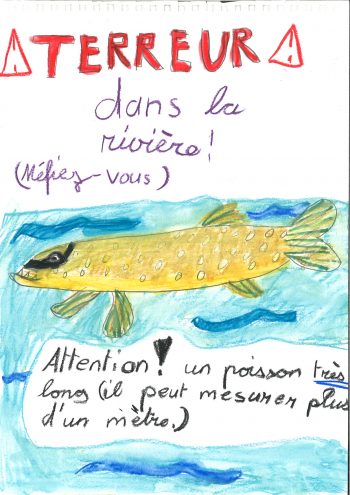 TERREUR
dans la
rivière!
(Méfiez-vous)
Attention! un poisson très
long (il peut mesurer plus
d'un mètre.)